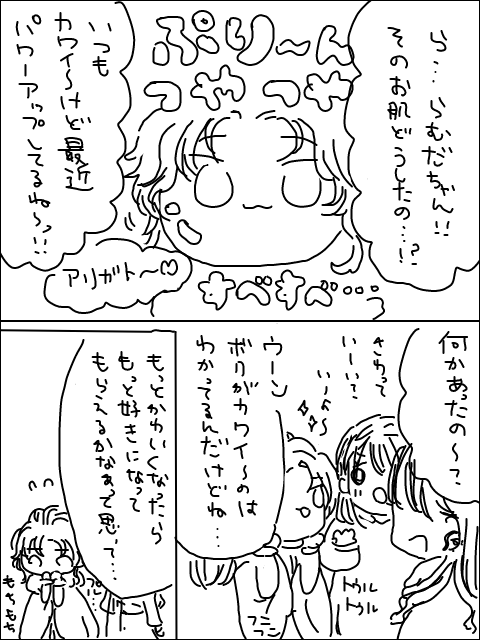 ら…らむだちゃん!!
そのお肌どうしたの…!?
ぷりーん
つやつや
いつも
カワイ〜けど最近
パワーアップしてるね〜っ!!
アリガト〜♡
すべすべ…
何かあったの〜?
さわって
い〜い?
い〜よ〜
ウーン
ボクがカワイ〜のは
わかってるんだけどね…
トゥル
トゥル
フニ
フニ
もっとかわいくなったら
もっと好きになって
もらえるかなぁって思って…
プル…
もちもち